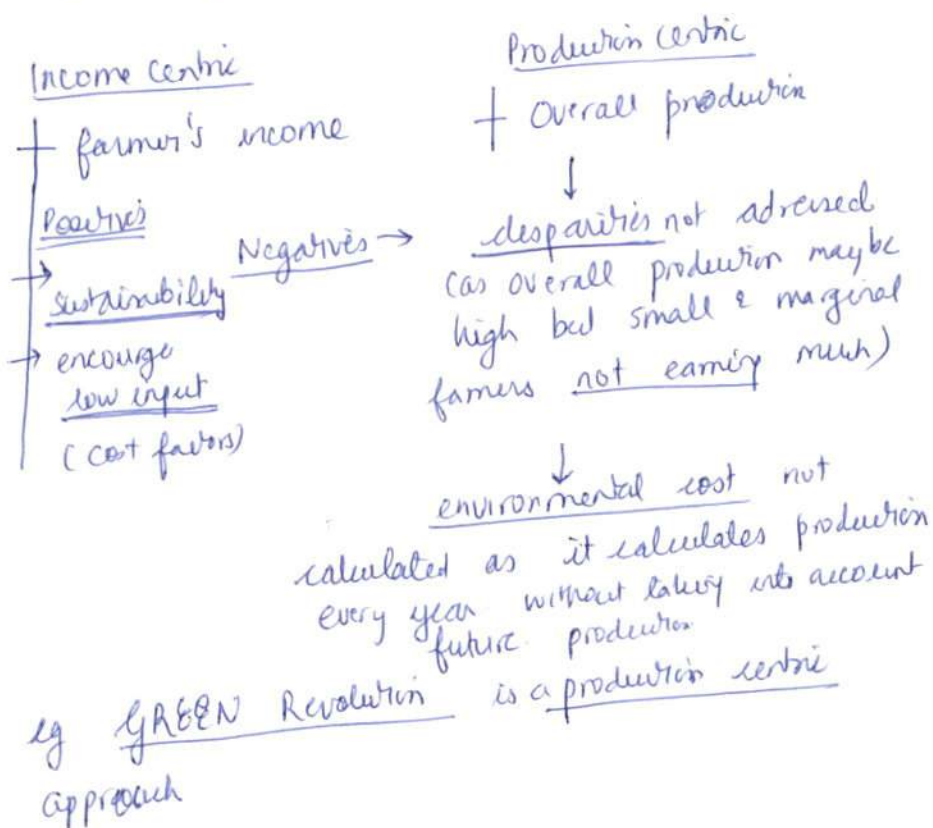 Income Centric
+ farmer's income
Positives
→ sustainability
→ encourge
low input
(cost favors)
Production centric
+ Overall production
↓
Negatives → desparities not adressed
(as overall production maybe
high but small & marginal
famers not earning much)
↓
environmental cost not
calculated as it calculates production
every year without taking into account
future production
eg GREEN Revolution is a production centric
approach